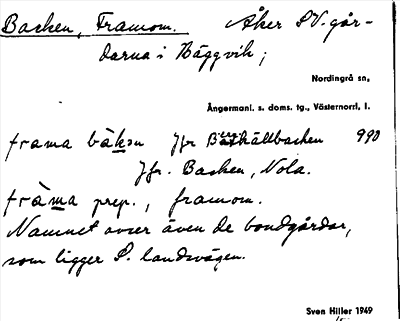 Backen, Framom. Åker SV. går-
darna i Häggvik;
Nordingrå sn,
Ångermanl. s. doms. tg., Västernorrl. l.
frama bäkɜn Jfr Båtkällbacken 990
Jfr. Backen, Nola.
fràma prep., framom.
Namnet avser även de bondgårdar,
som ligger S. landsvägen.
Sven Hiller 1949